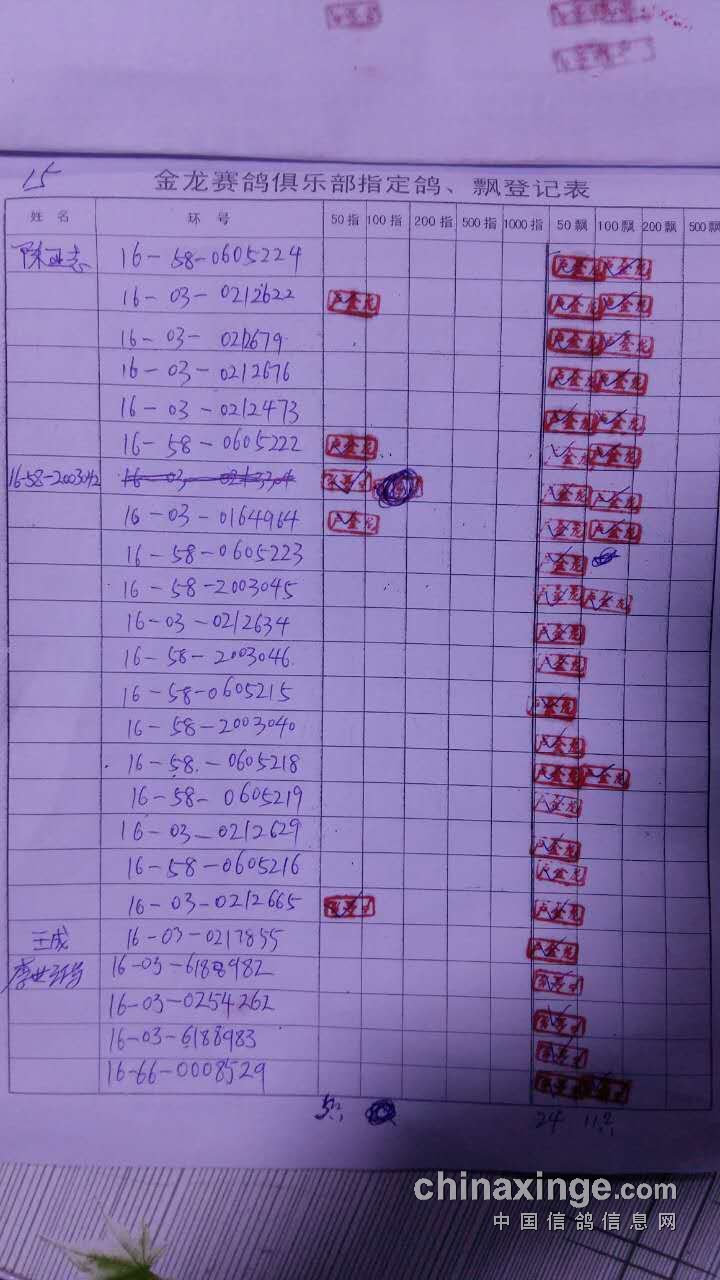 15
金龙赛鸽俱乐部指定鸽、飘登记表
姓 名 环 号 50指 100指 200指 500指 1000指 50飘 100飘 200飘 500飘
16-58-0605224
16-03-0212622
16-03-0212679
16-03-0212676
16-03-0212473
16-58-0605222
16-58-2003042
16-03-0164964
16-58-0605223
16-58-2003045
16-03-0212634
16-58-2003046
16-58-0605215
16-58-2003040
16-58-0605218
16-58-0605219
16-03-0212629
16-58-0605216
16-03-0212665
王成 16-03-0217855
16-03-6188982
16-03-0254262
16-03-6188983
16-66-0008529
24
chinaxinge.com
中国信鸽信息网